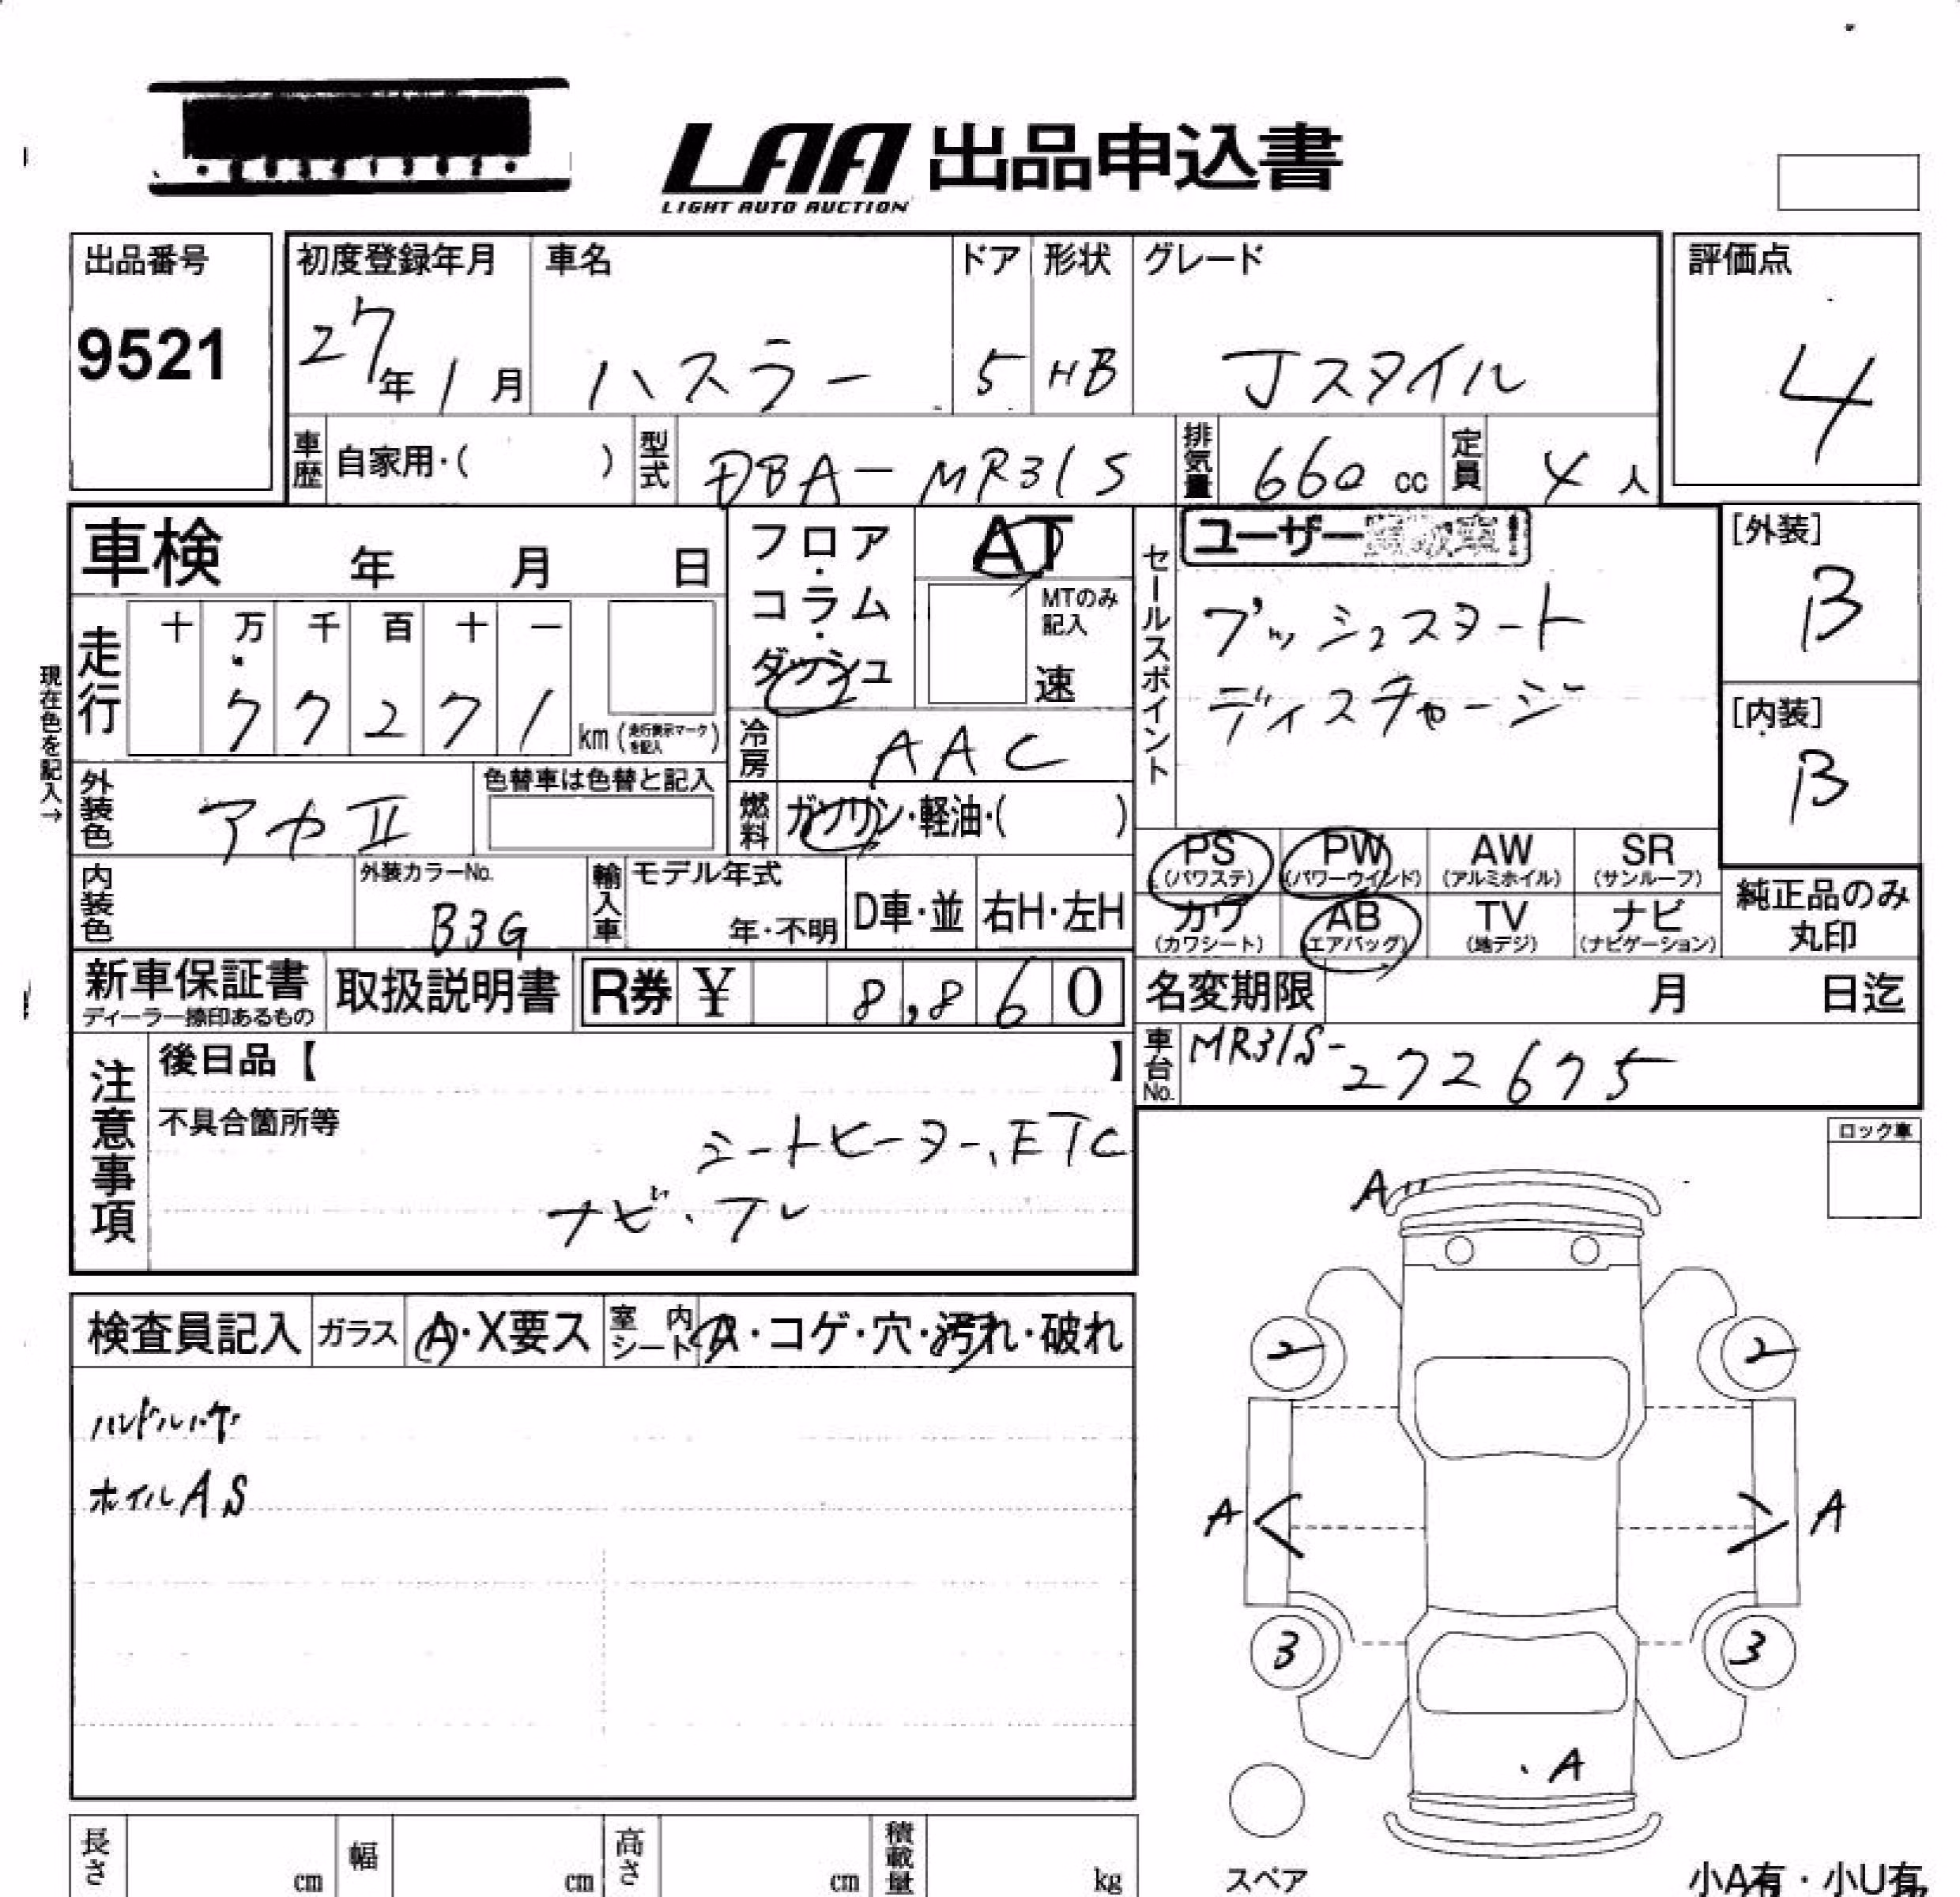 LAA 出品申込書
LIGHT AUTO AUCTION
出品番号
9521
初度登録年月
27年1月
車名
ハスラー
ドア
5
形状
HB
グレード
Jスタイル
評価点
4
車歴 自家用・( )
型式 DBA-MR31S
排気量 660 cc
定員 4 人
車検 年 月 日
走行 十 万 千 百 十 一
77271 km (走行表示マークを記入)
現在色を記入→
外装色 アカII
色替車は色替と記入
内装色
外装カラーNo.
B3G
フロア・コラム・ダッシュ
AT
MTのみ記入
速
冷房 AAC
燃料 ガソリン・軽油・( )
輸入車 モデル年式 年・不明 D車・並 右H・左H
セールスポイント
ユーザー
プッシュスタート
ディスチャージ
[外装]
B
[内装]
B
PS (パワステ) PW (パワーウインド) AW (アルミホイル) SR (サンルーフ)
カワ (カワシート) AB (エアバッグ) TV (地デジ) ナビ (ナビゲーション)
純正品のみ丸印
新車保証書 ディーラー捺印あるもの
取扱説明書
R券 ¥ 8,860
名変期限 月 日迄
車台No. MR31S-272675
注意事項
後日品【 】
不具合箇所等
シートヒーター、ETC
ナビ・フレ
ロック車
検査員記入 ガラス A・X要ス 室内シート A・コゲ・穴・汚れ・破れ
ハンドルハゲ
ホイルAS
A
2 2
A A
3 3
A
スペア
小A有・小U有
長さ cm 幅 cm 高さ cm 積載量 kg